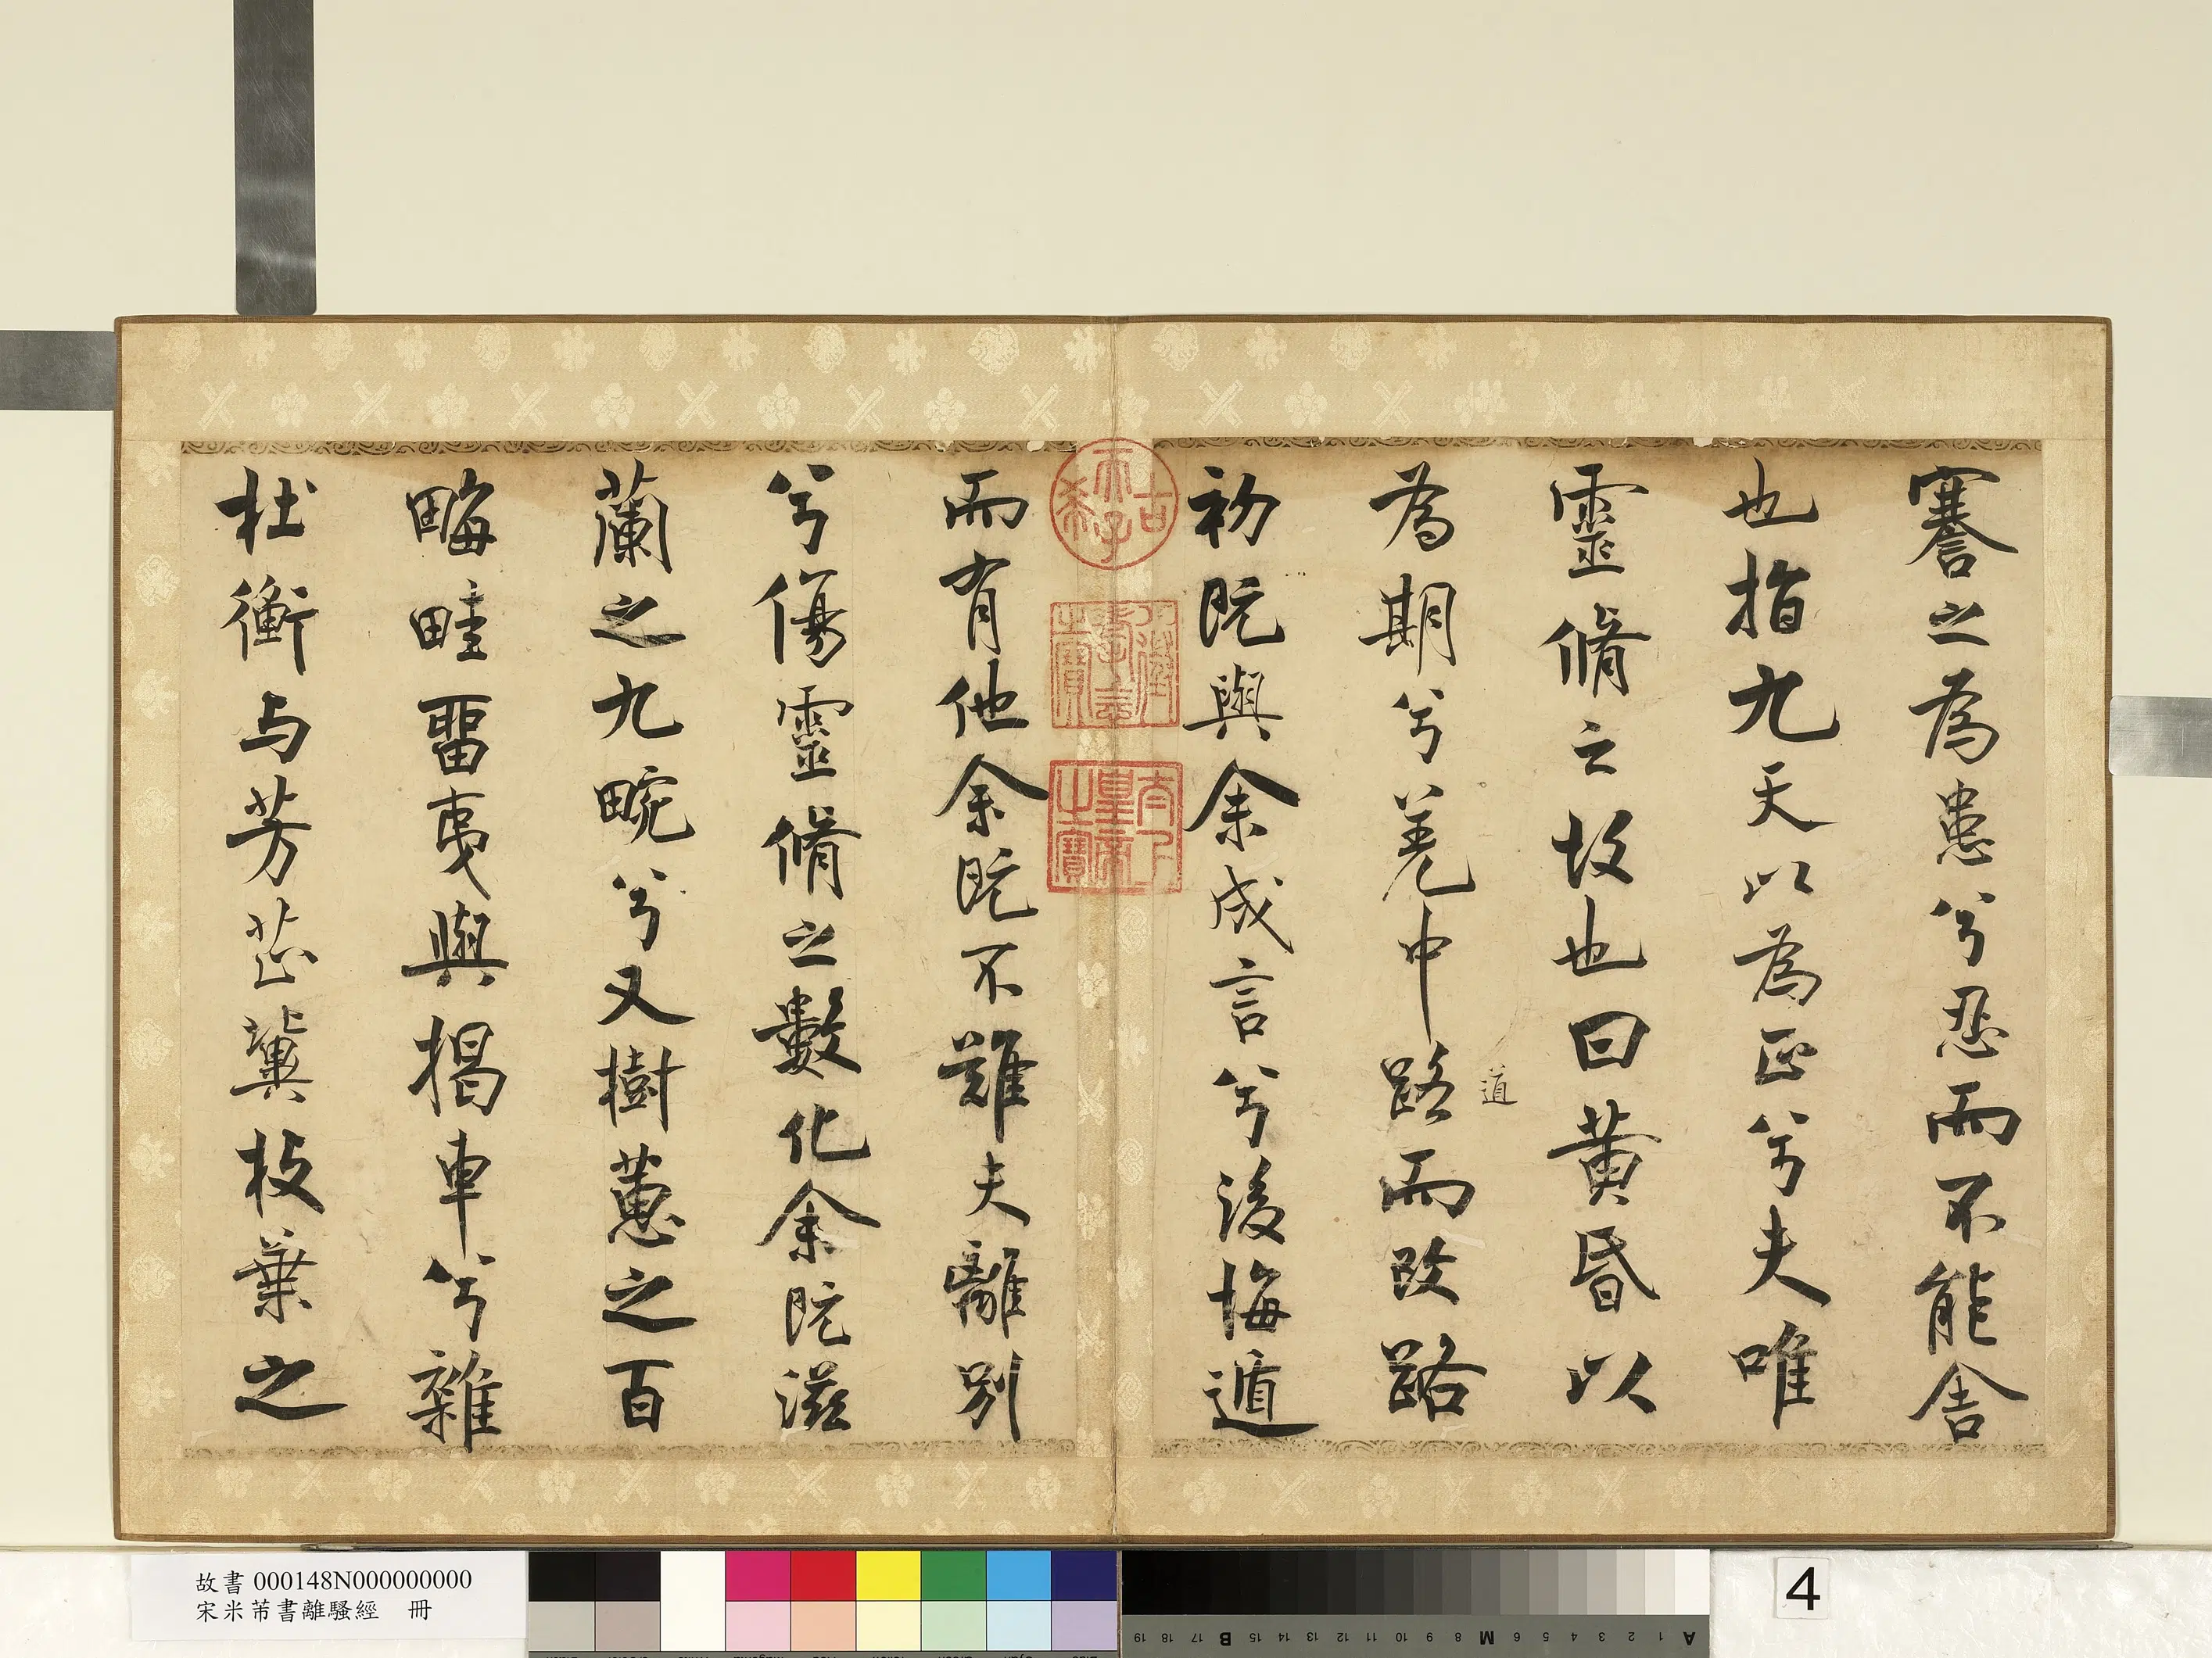 謇之為患兮忍而不能舍
也指九天以為正兮夫唯
靈脩之故也曰黃昏以
為期兮羌中路而改路
道
初既與余成言兮後悔遁
而有他余既不難夫離別
兮傷靈脩之數化余既滋
蘭之九畹兮又樹蕙之百
畮畦畱夷與揭車兮雜
杜衡与芳芷冀枝葉之
古
希
天子
壽
之寶
太上
皇帝
之寶
故書 000148N000000000
宋米芾書離騷經 冊
4
A 1 2 3 4 5 6 M 8 9 10 11 12 13 14 15 B 17 18 19